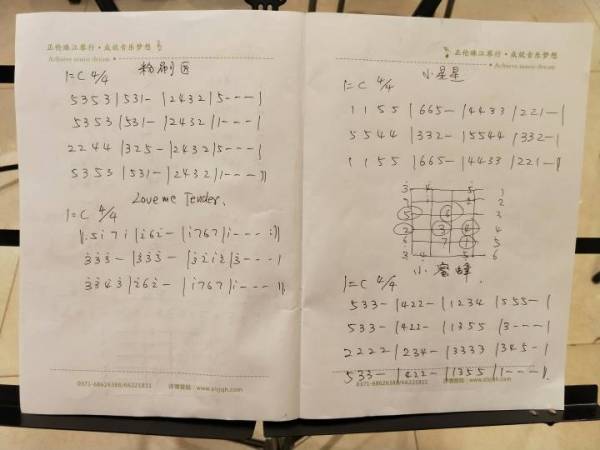 正伦珠江琴行·成就音乐梦想
Achieve music dream
粉刷匠
1=C 4/4
5 3 5 3 | 5 3 1 - | 2 4 3 2 | 5 - - - |
5 3 5 3 | 5 3 1 - | 2 4 3 2 | 1 - - - |
2 2 4 4 | 3 2 5 - | 2 4 3 2 | 5 - - - |
5 3 5 3 | 5 3 1 - | 2 4 3 2 | 1 - - - ||
Love me Tender.
1=C 4/4
||: 5 i 7 i | i̇ 6 i̇ - | i 7 6 7 | i - - - :||
3̇ 3̇ 3̇ - | 3̇ 3̇ 3̇ - |
3̇ 3̇ 4̇ 3̇ | i̇ 6 i̇ - | i 7 6 7 | i - - - ||
0371-68626388/66221811 详情登陆:www.zlqqh.com
正伦珠江琴行·成就音乐梦想
Achieve music dream
小星星
1=C 4/4
1 1 5 5 | 6 6 5 - | 4 4 3 3 | 2 2 1 - |
5 5 4 4 | 3 3 2 - | 5 5 4 4 | 3 3 2 - |
1 1 5 5 | 6 6 5 - | 4 4 3 3 | 2 2 1 - ||
1
2
3
4
5
6
小蜜蜂
1=C 4/4
5 3 3 - | 4 2 2 - | 1 2 3 4 | 5 5 5 - |
5 3 3 - | 4 2 2 - | 1 3 5 5 | 3 - - - |
2 2 2 2 | 2 3 4 - | 3 3 3 3 | 3 4 5 - |
5 3 3 - | 4 2 2 - | 1 3 5 5 | 1 - - - ||
0371-68626388/66221811 详情登陆:www.zlqqh.com